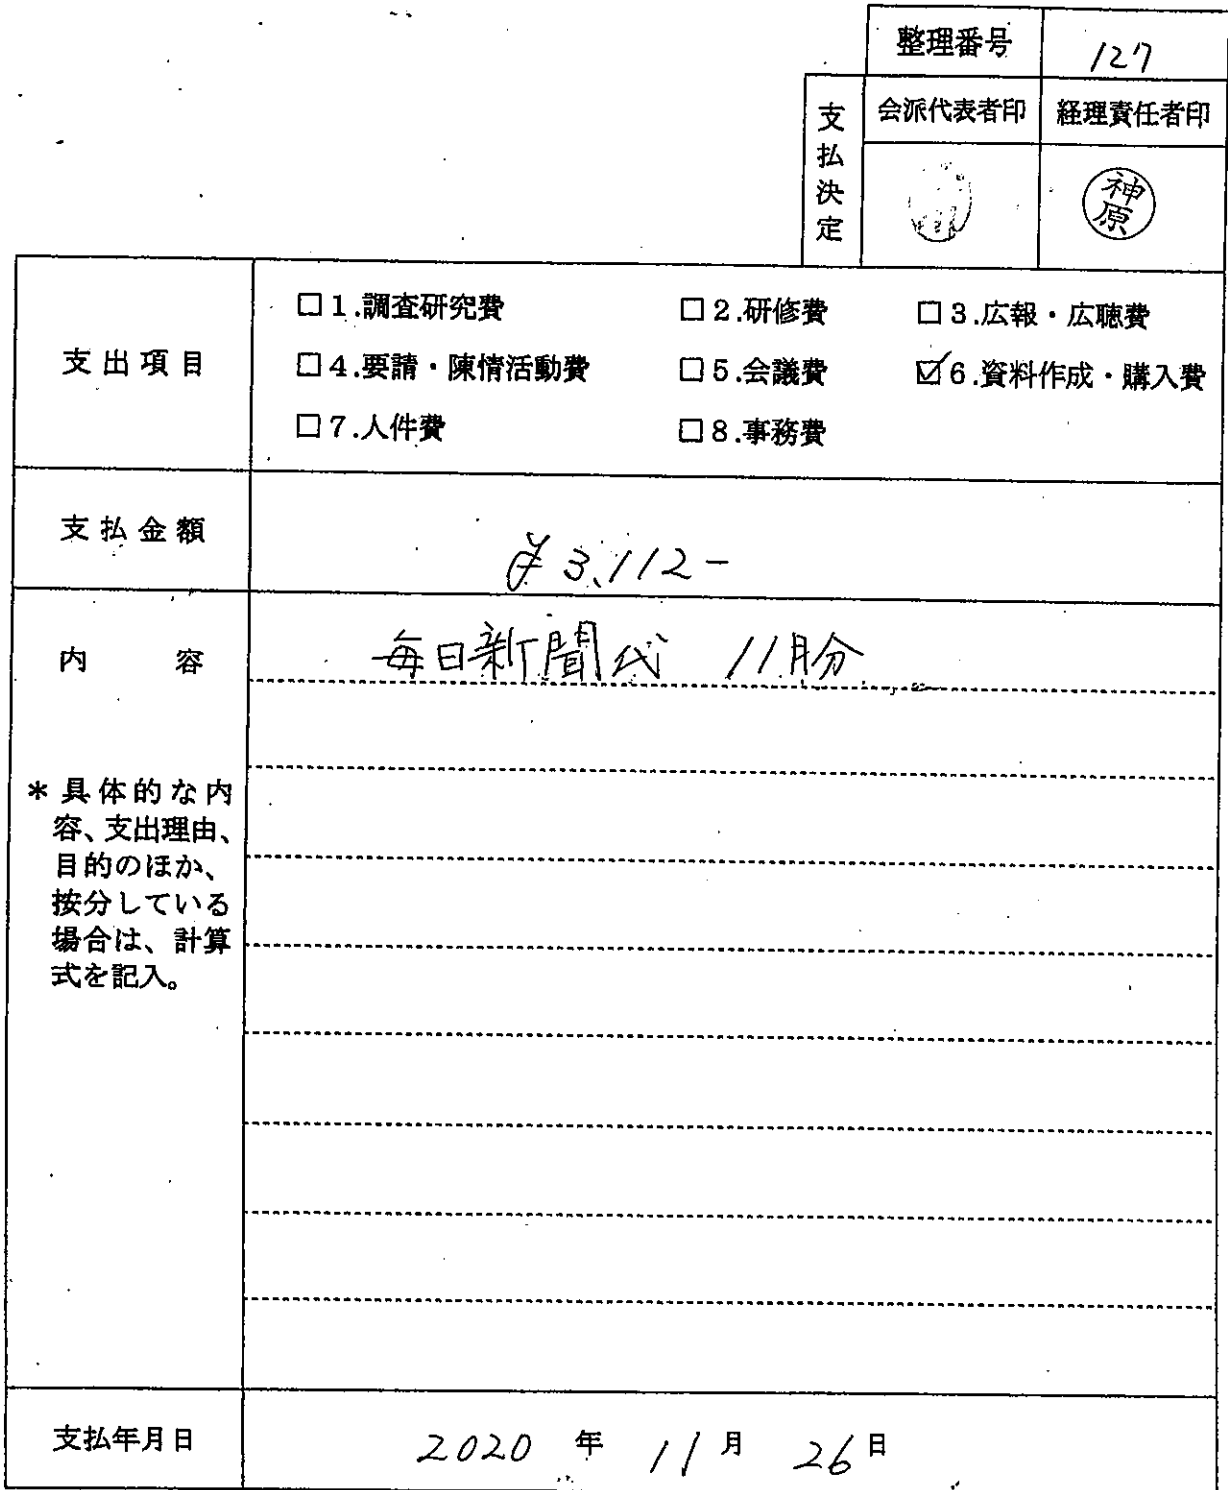 整理番号 127
支払決定
会派代表者印 経理責任者印
神原
支出項目
□1.調査研究費 □2.研修費 □3.広報・広聴費
□4.要請・陳情活動費 □5.会議費 ☑6.資料作成・購入費
□7.人件費 □8.事務費
支払金額 ¥3,112-
内容 毎日新聞代 11月分
*具体的な内
容、支出理由、
目的のほか、
按分している
場合は、計算
式を記入。
支払年月日 2020年11月26日